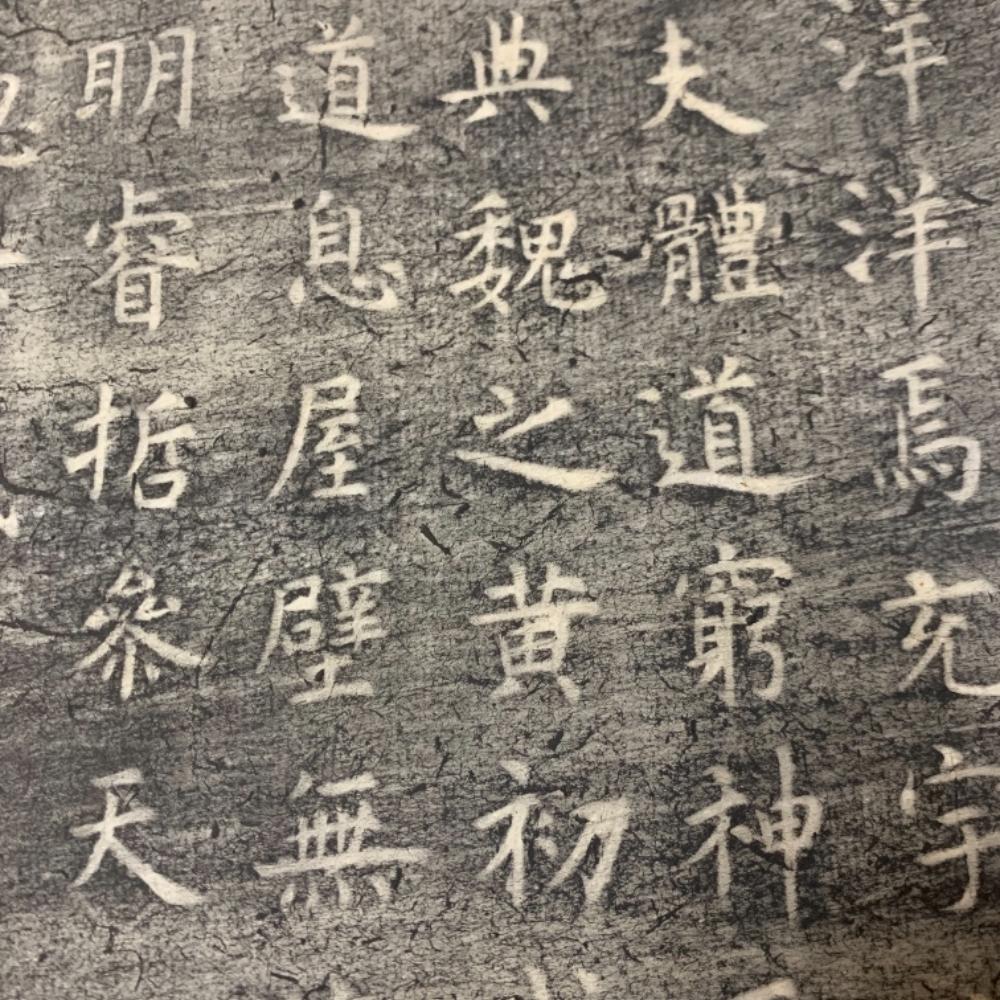 洋洋焉充宇
夫體道窮神
典魏之黃初
道息屋壁無
明睿哲參天